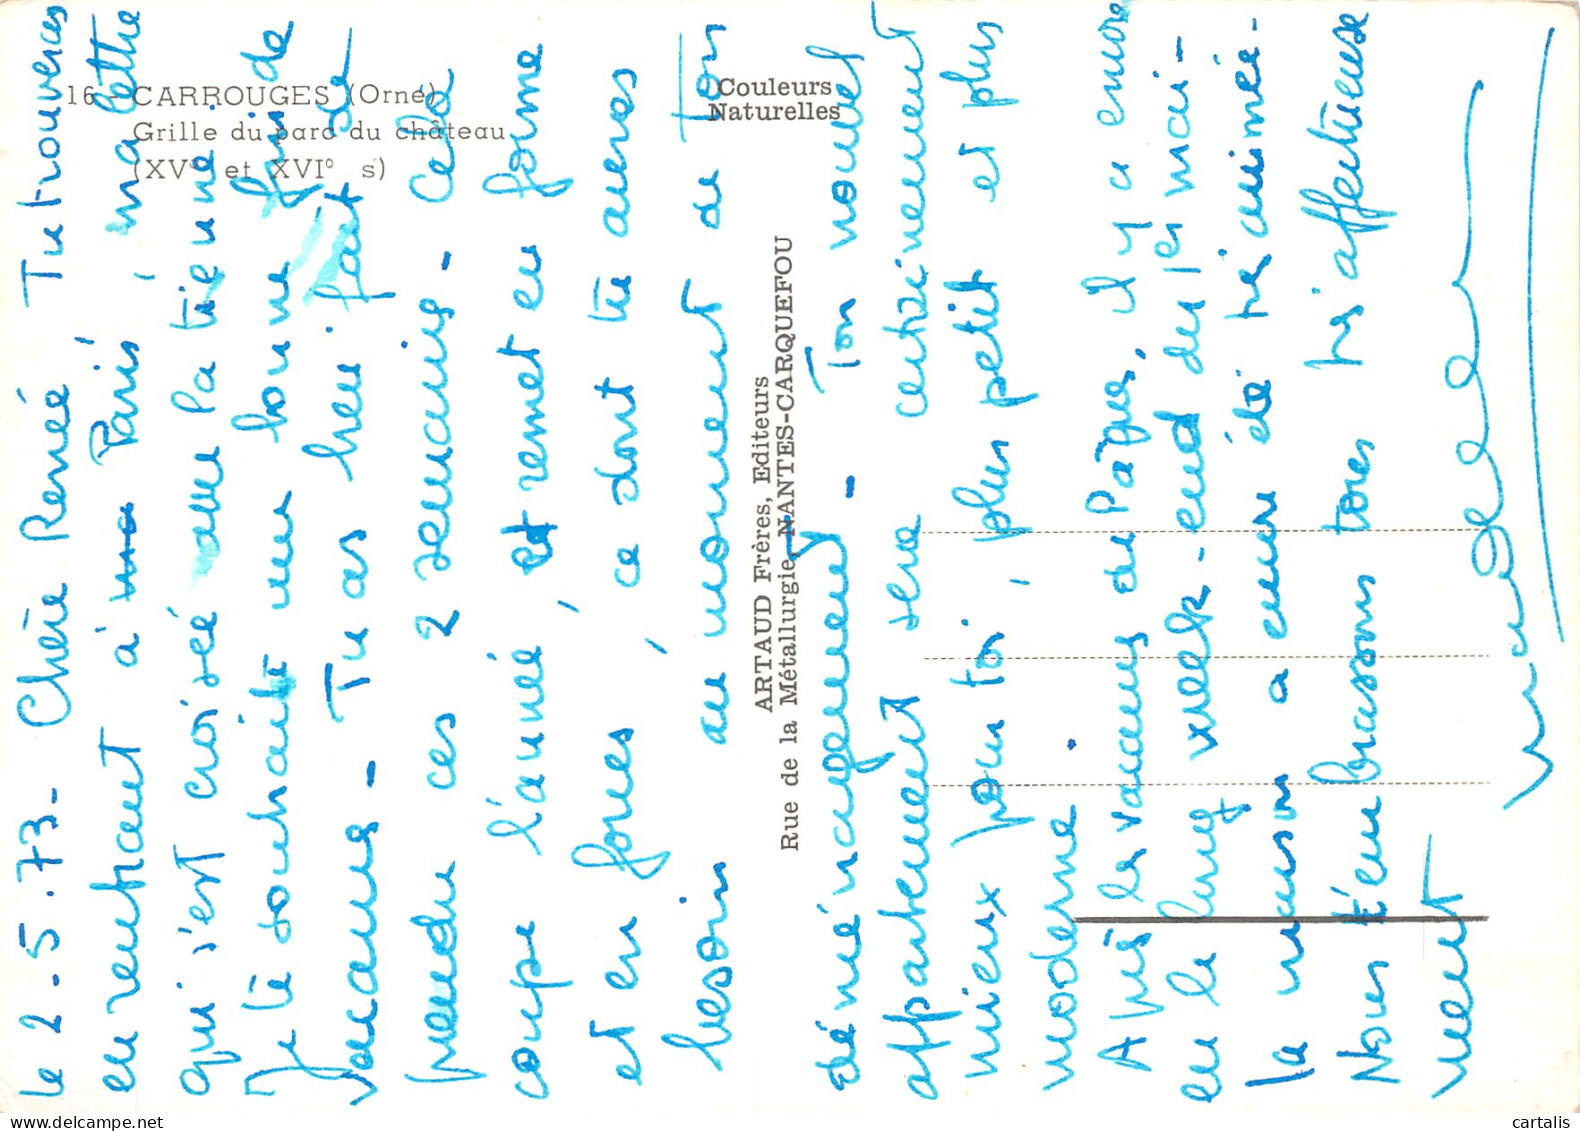 16 CARROUGES (Orne)
Grille du parc du château
(XV° et XVI° s)
Couleurs
Naturelles
ARTAUD Frères, Editeurs
Rue de la Métallurgie, NANTES-CARQUEFOU
le 2.5.73- Chère Renée, Tu trouveras
en rentrant à ma Paris, ma lettre
qui s'est croisée avec la tienne.
Je te souhaite une bonne fin de
vacances. Tu as bien fait de
prendre ces 2 semaines. Cela
coupe l'année, et remet en forme
et en forces, ce dont tu auras
besoin au moment de ton
déménagement. Ton nouvel
appartement sera certainement
mieux pour toi, plus petit et plus
moderne.
Après les vacances de Pâques, il y a encore
eu le long week-end du 1er mai-
la maison a encore été très animée.
Nous t'embrassons tous très affectueuse
ment
cartalis